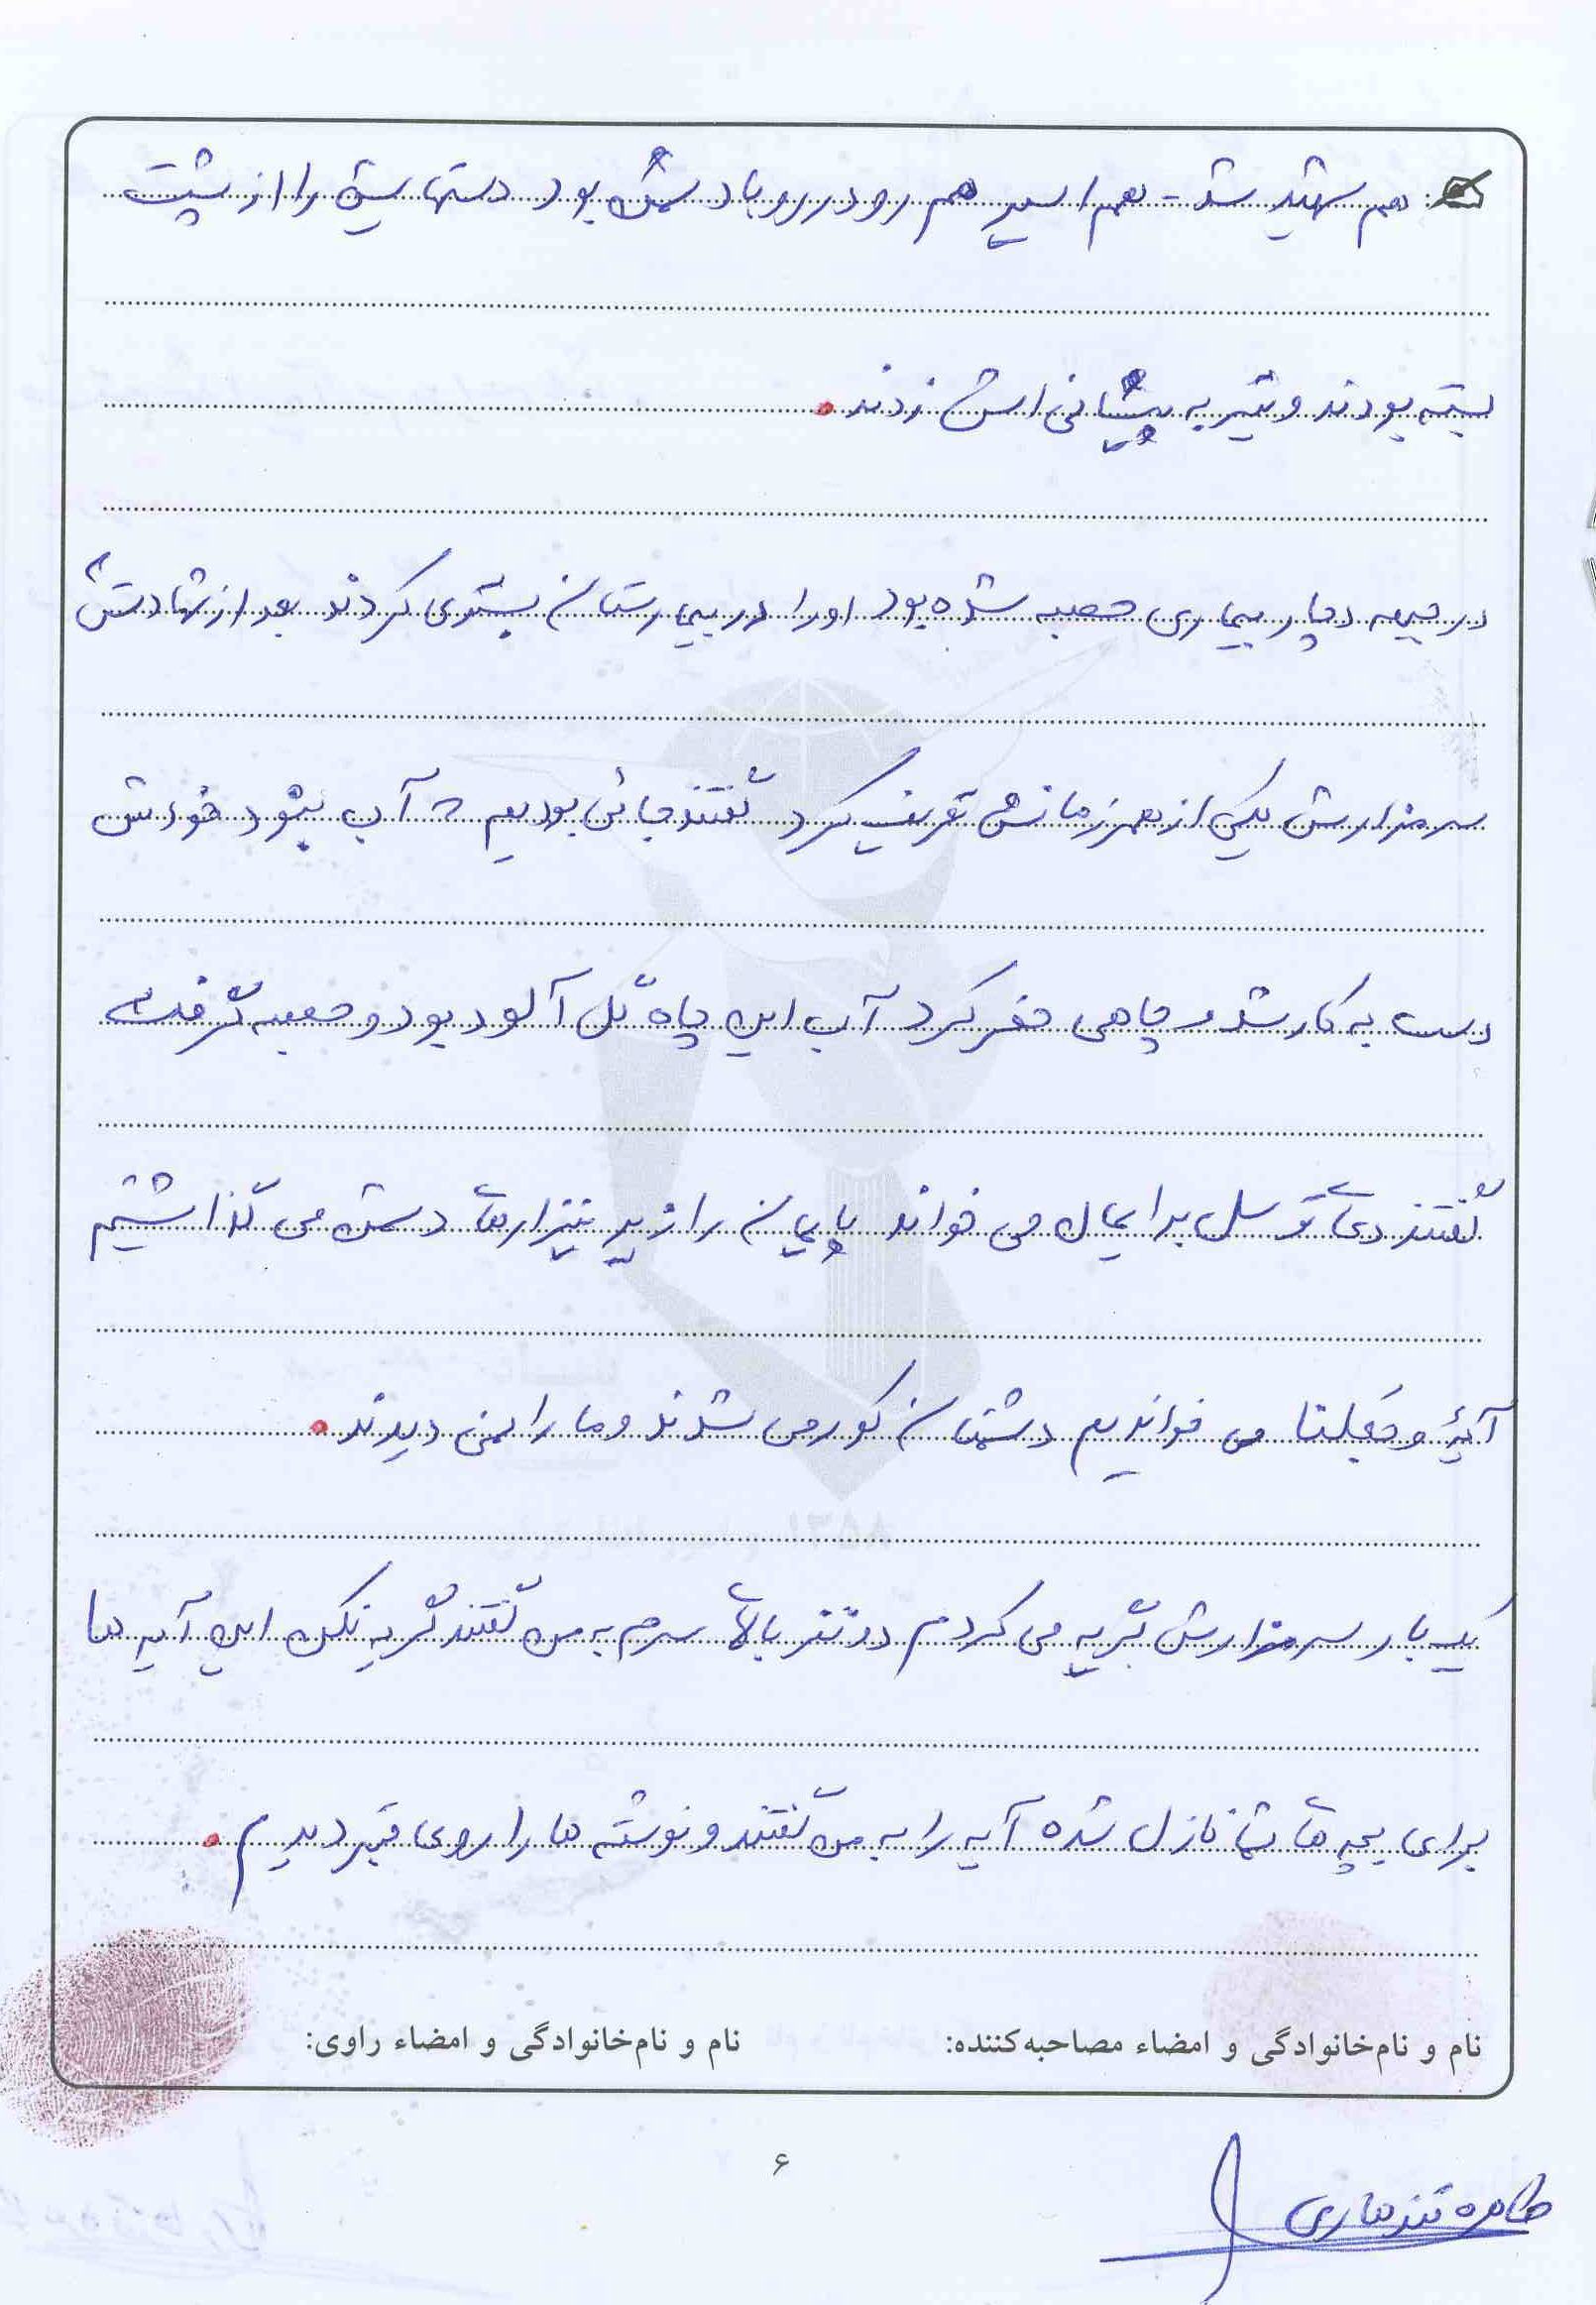 هم شهید شد - هم اسیر هم رودررو با دشمن بود دستهایش را از پشت
بسته بودند و تیر به پیشانی اش زدند.
در جبهه دچار بیماری حصبه شده بود او را در بیمارستان بستری کردند بعد از شهادتش
سر مزارش یکی از همرزمانش تعریف کرد گفتند جائی بودیم آب نبود خودش
دست به کار شد و چاهی حفر کرد آب این چاه گل آلود بود و حصبه گرفت
گفتند دعای توسل برایمان می خواند پایمان را زیر نیزارهای دشمن می گذاشتیم
آیهٔ وجعلنا می خواندیم دشمنان کور می شدند و ما را نمی دیدند.
یک بار سر مزارش گریه می کردم دو نفر بالای سرم به من گفتند گریه نکن این آیه ها
برای بچه های شما نازل شده آیه را به من گفتند و نوشته ها را روی قبر دیدیم.
نام و نام‌خانوادگی و امضاء مصاحبه‌کننده: نام و نام‌خانوادگی و امضاء راوی:
۶
طاهره قندهاری
۱۳۵۸